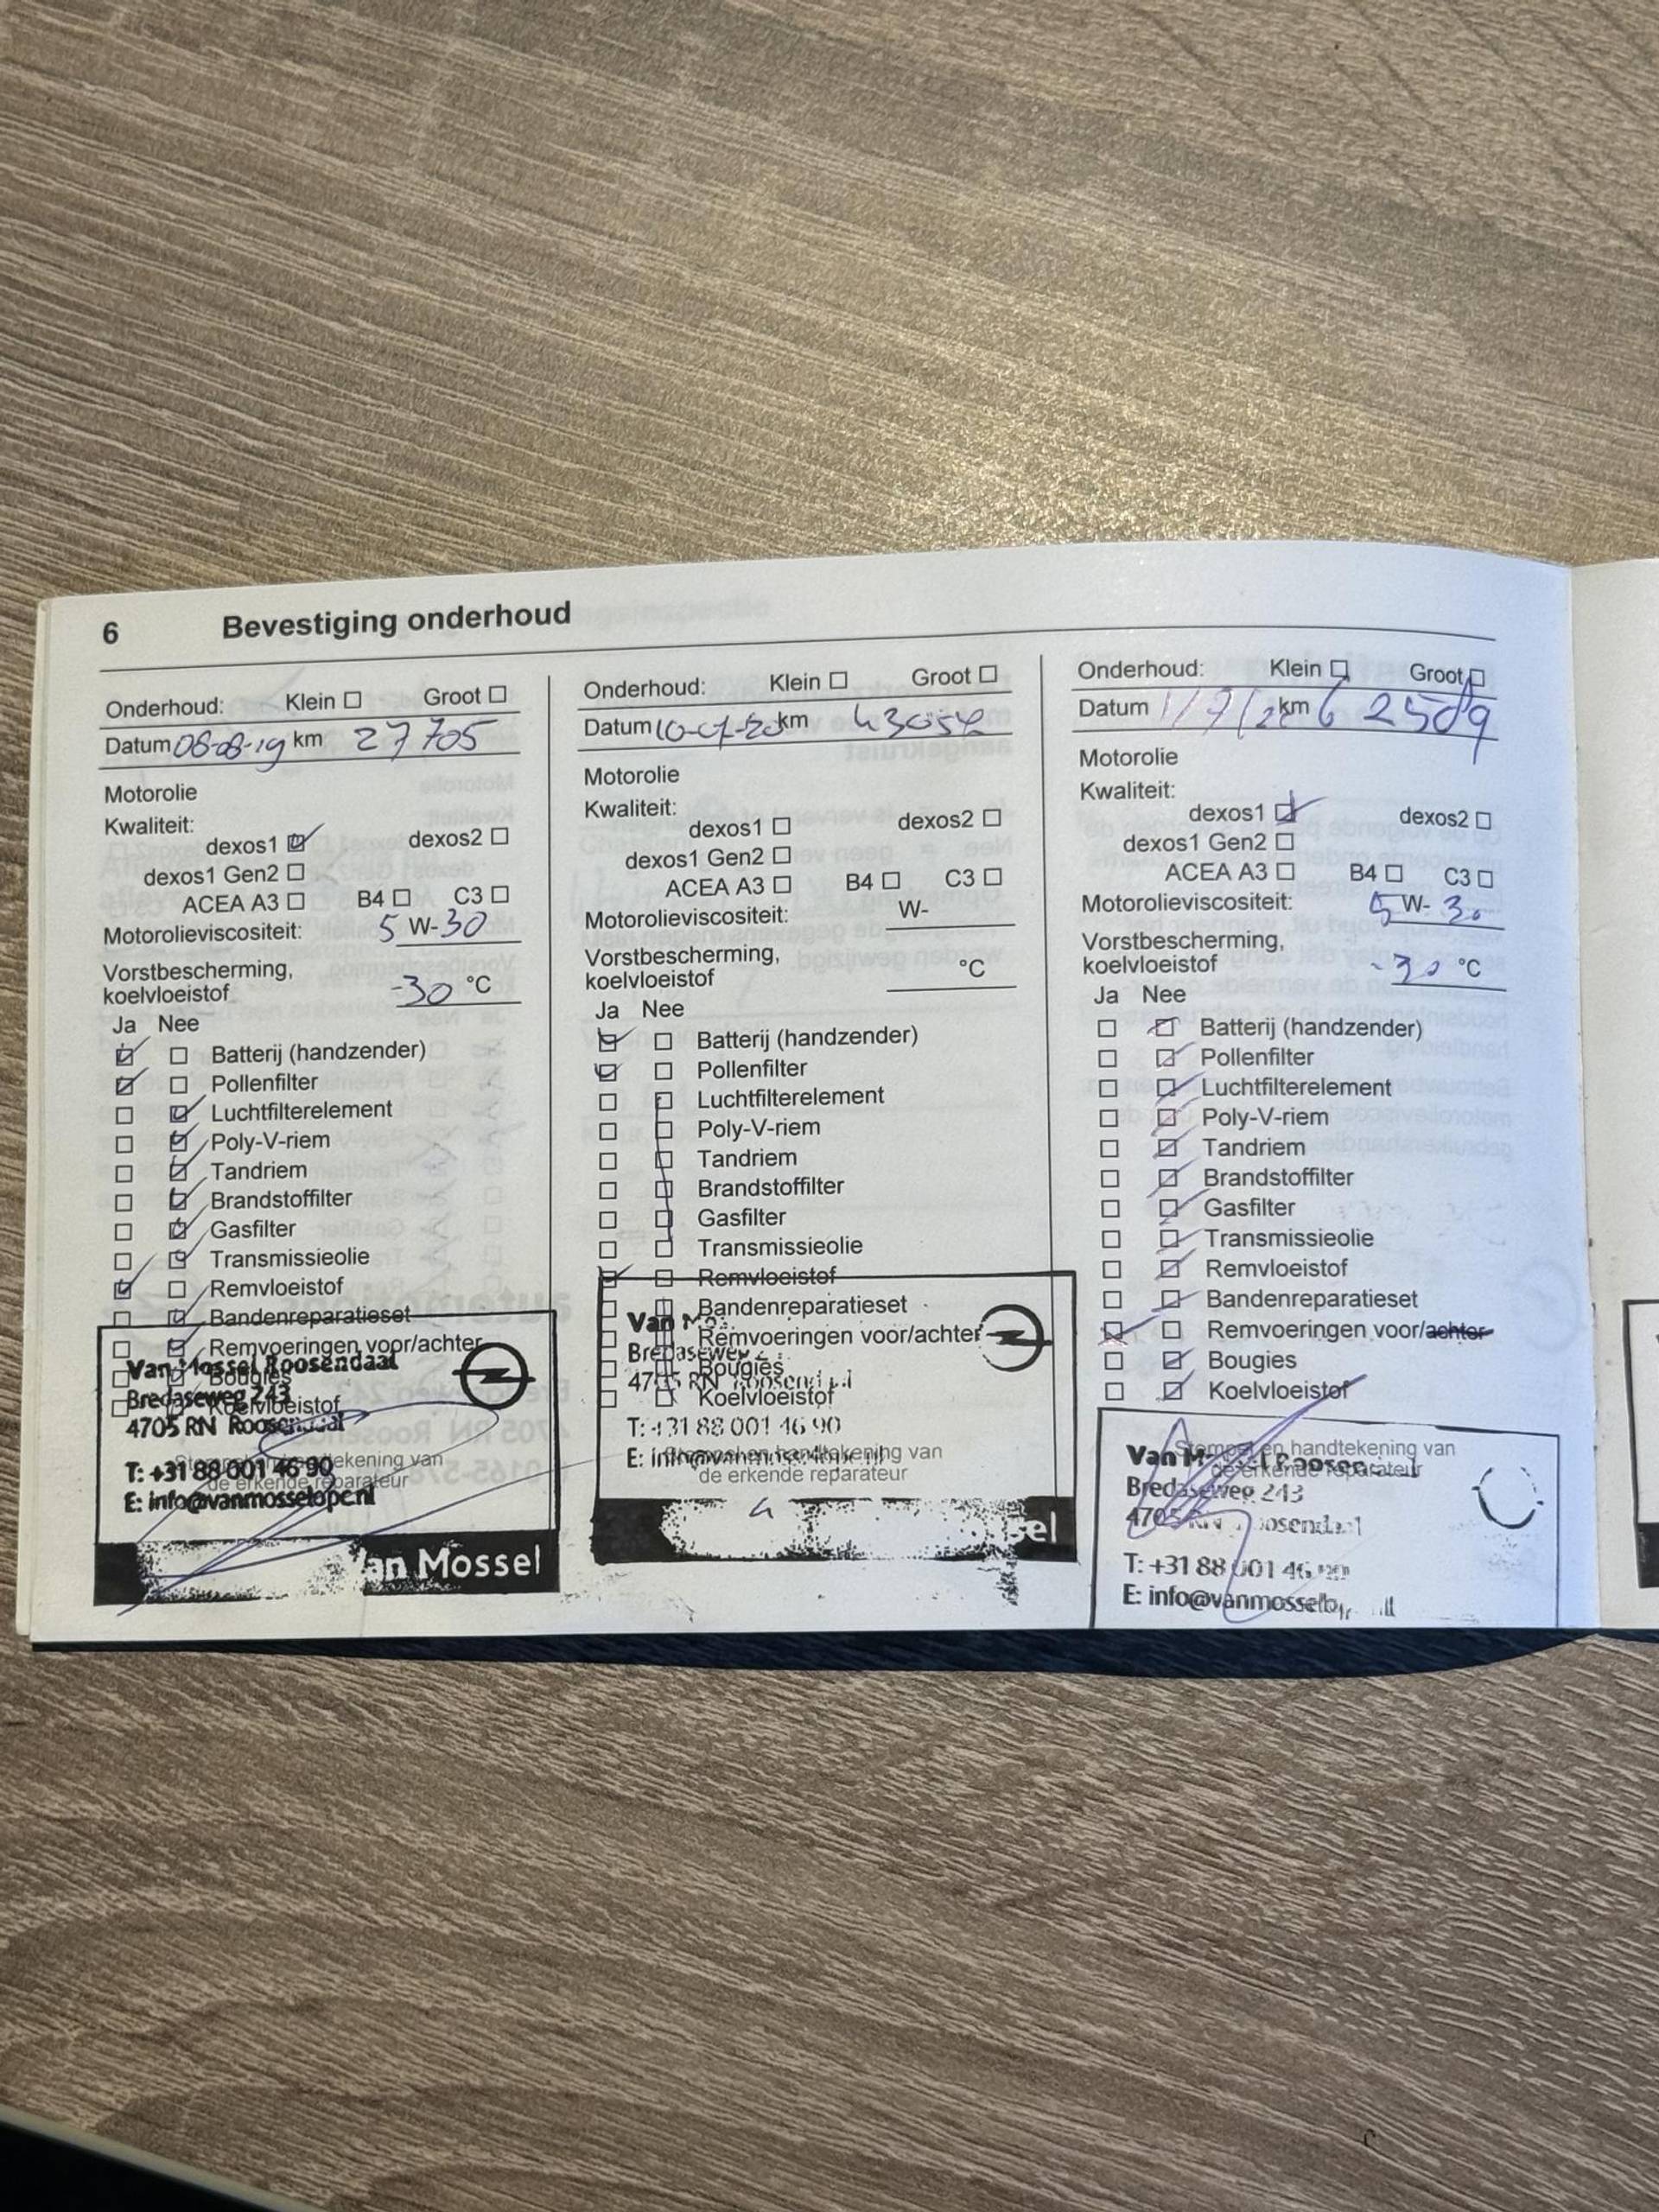 6 Bevestiging onderhoud
Onderhoud: Klein ☐ Groot ☐
Datum 08-08-19 km 27705
Motorolie
Kwaliteit:
dexos1 ☑ dexos2 ☐
dexos1 Gen2 ☐
ACEA A3 ☐ B4 ☐ C3 ☐
Motorolieviscositeit: 5 W-30
Vorstbescherming,
koelvloeistof -30 °C
Ja Nee
☑ ☐ Batterij (handzender)
☑ ☐ Pollenfilter
☐ ☑ Luchtfilterelement
☐ ☑ Poly-V-riem
☐ ☑ Tandriem
☐ ☑ Brandstoffilter
☐ ☑ Gasfilter
☐ ☑ Transmissieolie
☑ ☐ Remvloeistof
☐ ☑ Bandenreparatieset
☐ ☑ Remvoeringen voor/achter
☐ ☑ Bougies
☐ ☑ Koelvloeistof
Van Mossel Roosendaal
Bredaseweg 243
4705 RN Roosendaal
T: +31 88 001 46 90
E: info@vanmosselopc.nl
Van Mossel
Onderhoud: Klein ☐ Groot ☐
Datum 10-07-20 km
Motorolie
Kwaliteit:
dexos1 ☐ dexos2 ☐
dexos1 Gen2 ☐
ACEA A3 ☐ B4 ☐ C3 ☐
Motorolieviscositeit: W-
Vorstbescherming,
koelvloeistof °C
Ja Nee
☑ ☐ Batterij (handzender)
☑ ☐ Pollenfilter
☐ ☐ Luchtfilterelement
☐ ☐ Poly-V-riem
☐ ☐ Tandriem
☐ ☐ Brandstoffilter
☐ ☐ Gasfilter
☐ ☐ Transmissieolie
☑ ☐ Remvloeistof
☐ ☐ Bandenreparatieset
☐ ☐ Remvoeringen voor/achter
☐ ☐ Bougies
☐ ☐ Koelvloeistof
Van
Bredaseweg
4705 RN
T: +31 88 001 46 90
Stempel en handtekening van
de erkende reparateur
Onderhoud: Klein ☐ Groot ☐
Datum km 62509
Motorolie
Kwaliteit:
dexos1 ☑ dexos2 ☐
dexos1 Gen2 ☐
ACEA A3 ☐ B4 ☐ C3 ☐
Motorolieviscositeit: 5 W- 30
Vorstbescherming,
koelvloeistof -30 °C
Ja Nee
☐ ☑ Batterij (handzender)
☐ ☑ Pollenfilter
☐ ☑ Luchtfilterelement
☐ ☑ Poly-V-riem
☐ ☑ Tandriem
☐ ☑ Brandstoffilter
☐ ☑ Gasfilter
☐ ☑ Transmissieolie
☐ ☑ Remvloeistof
☐ ☑ Bandenreparatieset
☑ ☐ Remvoeringen voor/achter
☐ ☑ Bougies
☐ ☑ Koelvloeistof
Stempel en handtekening van
de erkende reparateur
Van Mossel Roosendaal
Bredaseweg 243
4705 RN Roosendaal
T: +31 88 001 46 90